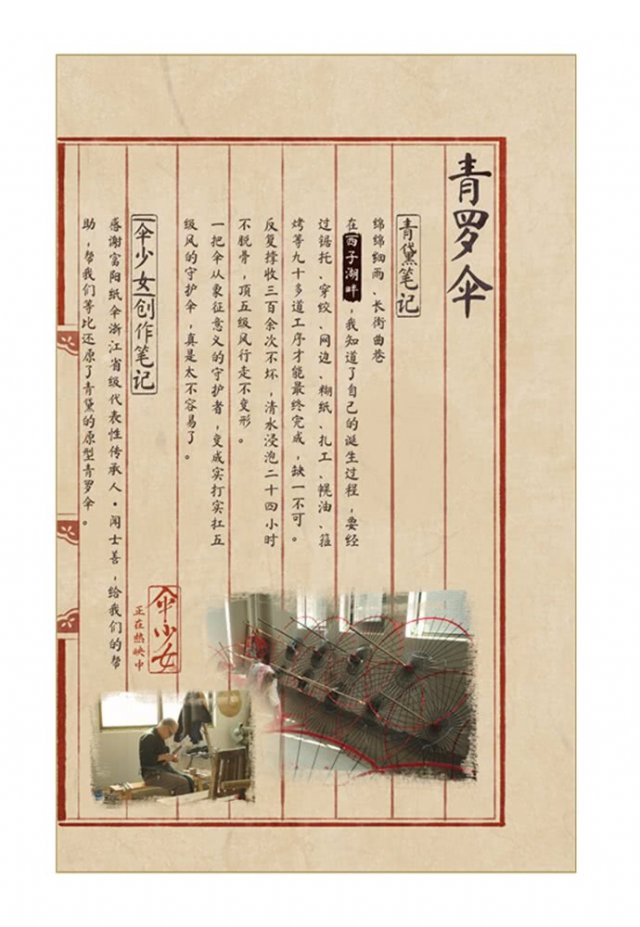 青罗伞
青黛笔记
绵绵细雨、长街曲巷
在西子湖畔，我知道了自己的诞生过程，要经
过锯托、穿绞、网边、糊纸、扎工、幌油、箍
烤等九十多道工序才能最终完成，缺一不可。
反复撑收三百余次不坏，清水浸泡二十四小时
不脱骨，顶五级风行走不变形。
一把伞从象征意义的守护者，变成实打实扛五
级风的守护伞，真是太不容易了。
伞少女创作笔记
感谢富阳纸伞浙江省级代表性传承人·闻士善，给我们的帮
助，帮我们等比还原了青黛的原型青罗伞。
伞少女
正在热映中